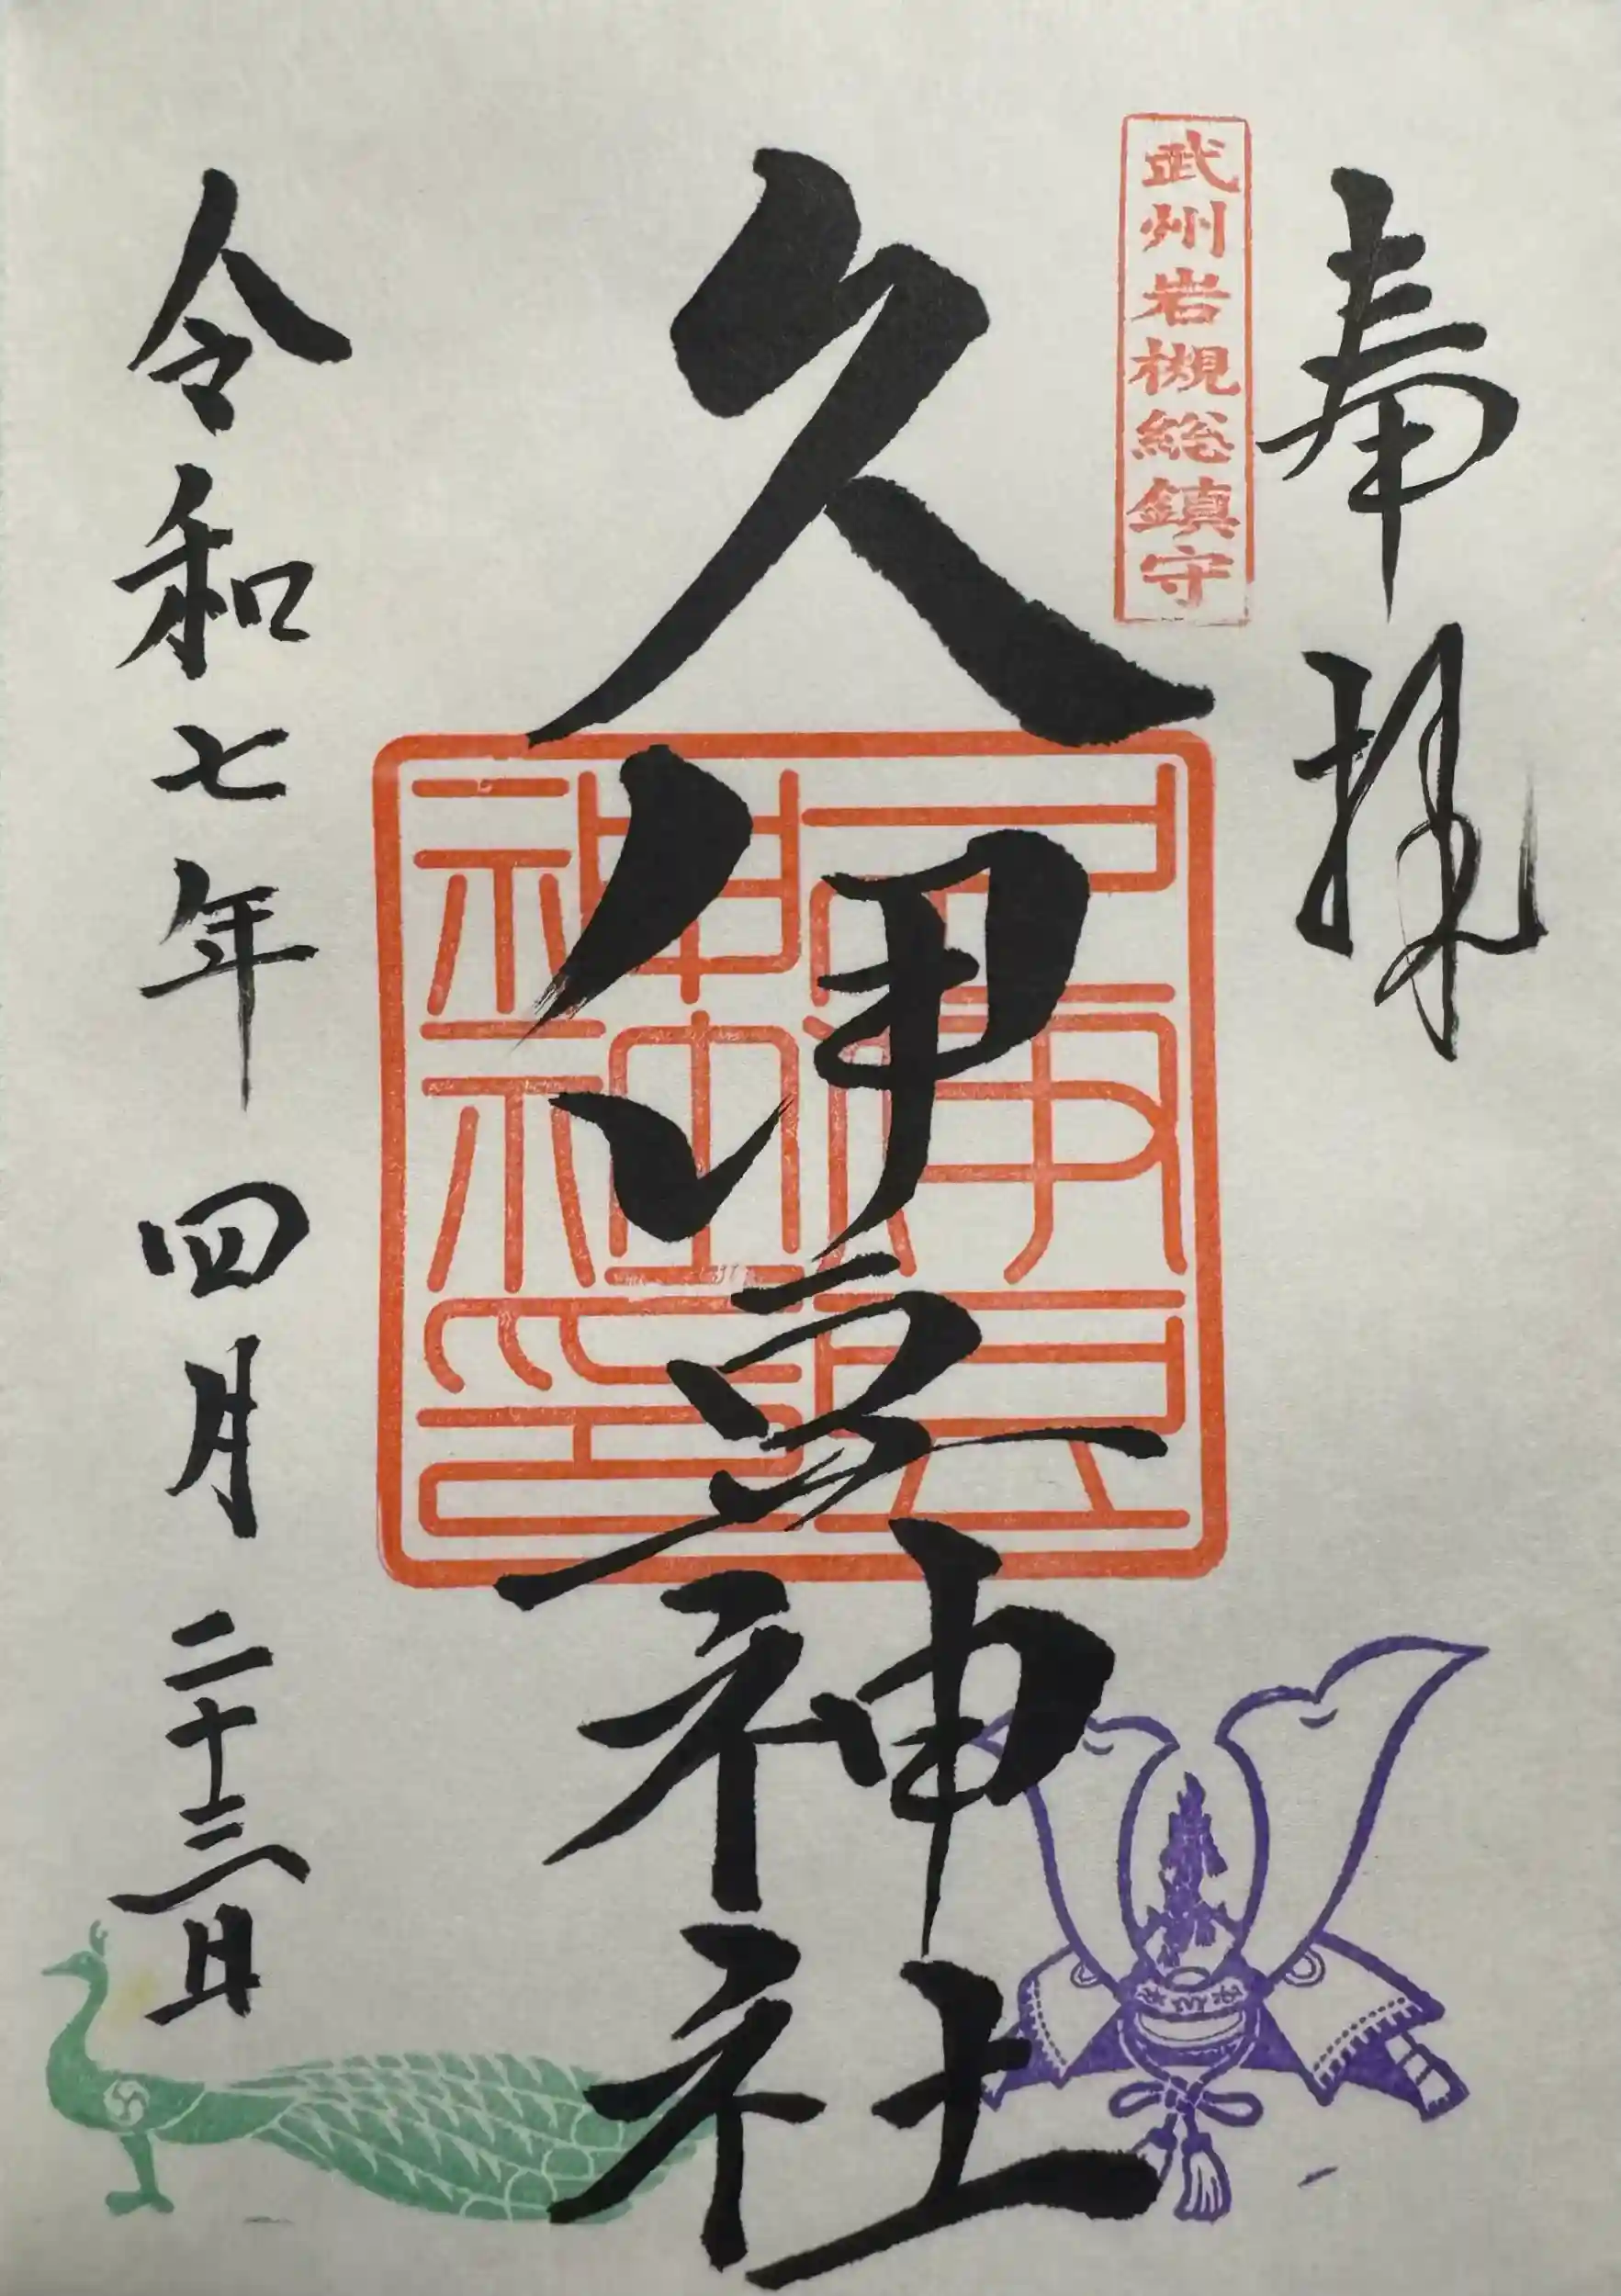 奉拝
武州岩槻総鎮守
久伊豆神社
令和七年 四月 二十三日